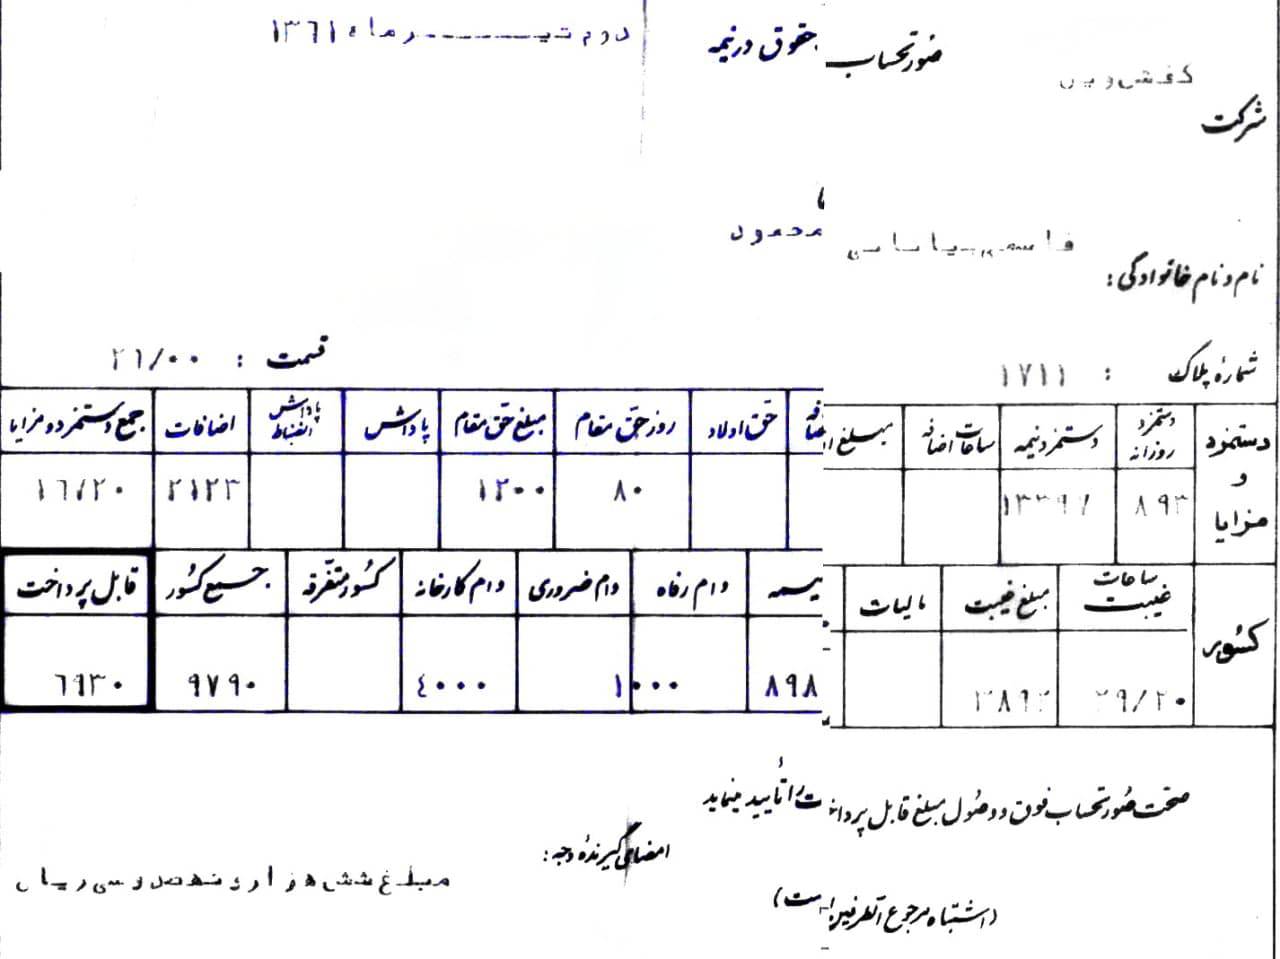 صورتحساب حقوق در نیمه دوم تیــــــرماه ۱۳٦۱
شرکت کفش وین
نام و نام خانوادگی: قاسمی بابا محمود
شمارهٔ پلاک : ۱۷۱۱ قسمت : ۲۱/۰۰
دستمزد و مزایا
دستمزد روزانه دستمزد نیمه ساعات اضافه مبلغ حق اولاد روز حق مقام مبلغ حق مقام پاداش پاداش انضباط اضافات جمع دستمزد و مزایا
۸۹۳ ۱۳۳۹۷ ۸۰ ۱۲۰۰ ۲۱۲۳ ۱٦۷۲۰
کسور
ساعات غیبت مبلغ غیبت مالیات بیمه وام رفاه وام ضروری وام کارخانه کسور متفرقه جمع کسور قابل پرداخت
۲۹/۲۰ ۳۸۹۲ ۸۹۸ ۱۰۰۰ ٤۰۰۰ ۹۷۹۰ ٦۹۳۰
صحت صورتحساب فوق و وصول مبلغ قابل پرداخت را تأیید مینماید
امضای گیرندهٔ وجه:
مبلغ شش هزار و نهصد و سی ریال
(اشتباه مرجوع الطرفین است)